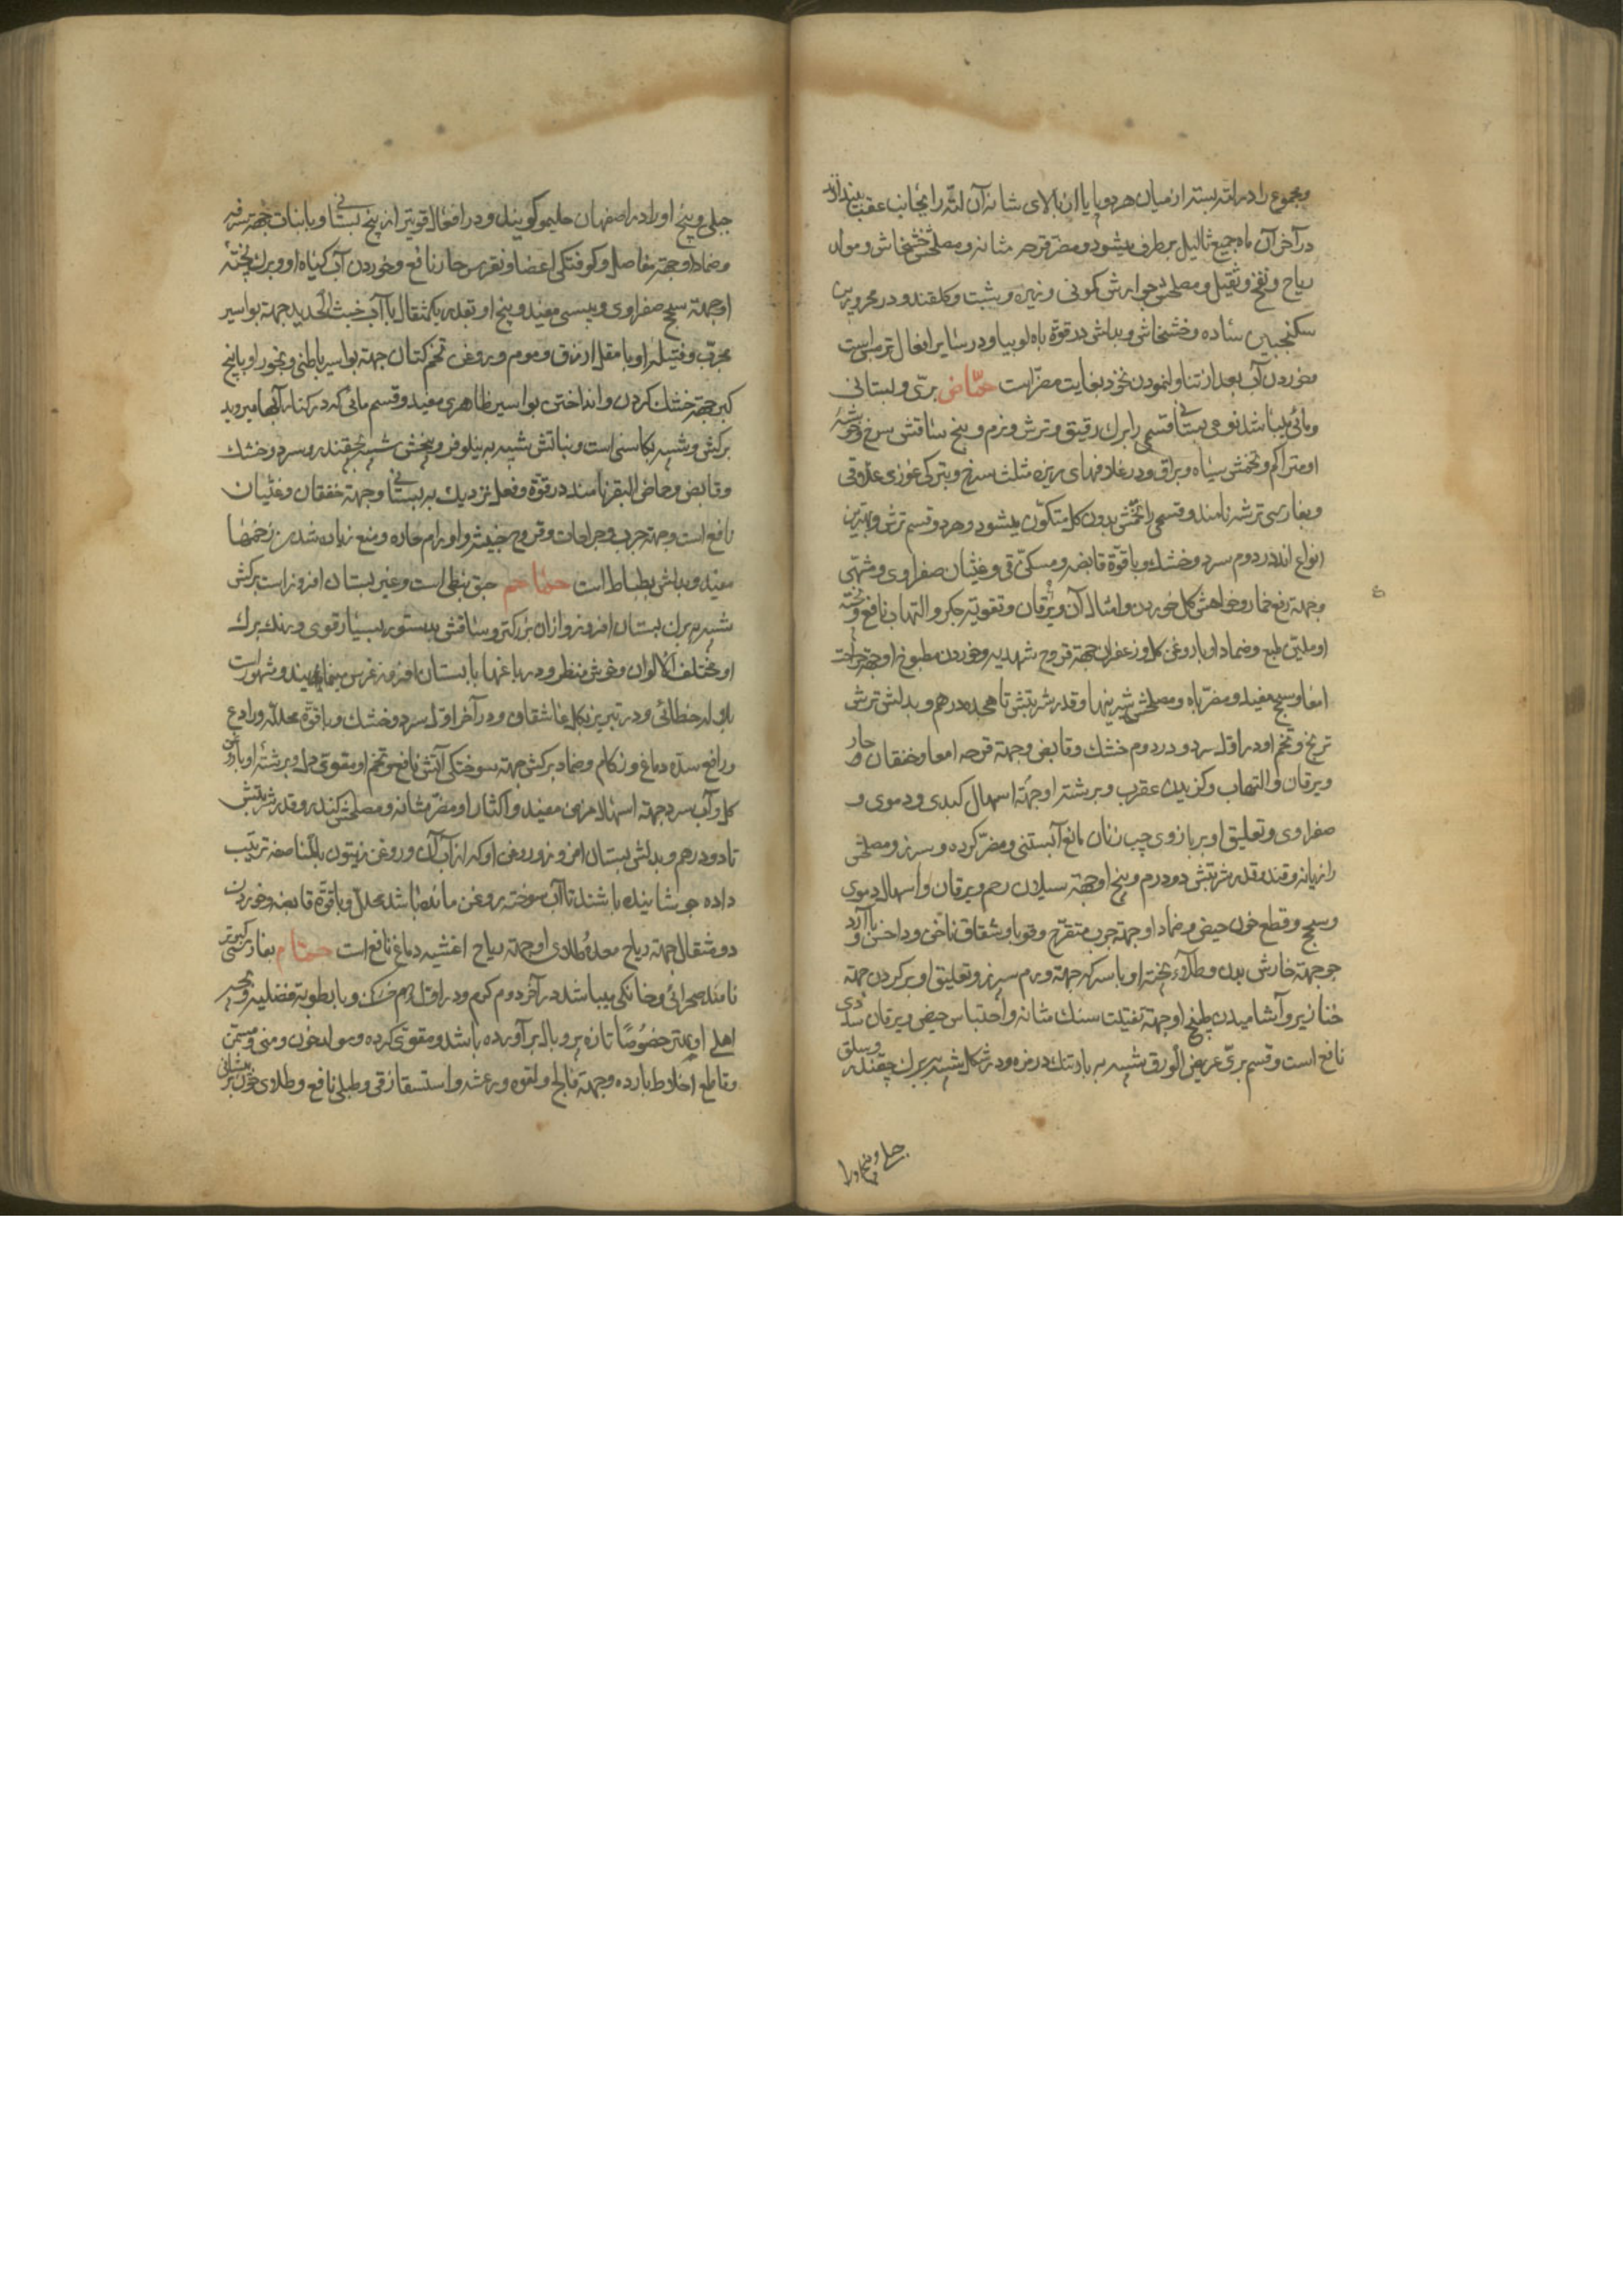 ومجموع را در لته بسته از میان هر دو پا یا از بالای شانه آن لته را بجانب عقب بیندازند
در آخر آن ماه جمیع ثالیل برطرف میشود و مضر قرحه مثانه و مصلحش خشخاش و مولد
ریاح و نفخ و ثقیل و مصلحش جوارش کمونی و زیره و شبت و گلقند و در محرورین
سکنجبین ساده و خشخاش و بدلش در قوة باه لوبیا و در سایر افعال ترمس است
و خوردن آب بعد از تناول نمودن نخود بغایت مضر است حمّاض برّی و بستانی
و مائی میباشد نوعی بستانی قسمی را برك رقیق و ترش و نرم و بیخ ساقش سرخ و خوشه
او متراکم و تخمش سیاه و براق و در غلافهای ریزه مثلث سرخ و بترکی غوزی علاقی
و بفارسی ترشه نامند و قسمی را تخمش بدون گل متکون میشود و هر دو قسم ترش و بهترین
انواع اند در دوم سرد و خشك و با قوّة قابضه و مسکن قی و غثیان صفراوی و مشهی
وجهة رفع خمار و خواهش گل خوردن و امثال آن و یرقان و تقویة جگر و التهاب نافع و پخته
او ملین طبع و ضماد او با روغن گل و زعفران جهة قروح شهدیه و خوردن مطبوخ او جهة جراحت
امعا و سحج مفید و مضر باه و مصلحش شیرینها و قدر شربتش تا هجده درهم و بدلش ترشی
ترنج و تخم او در اول سرد و در دوم خشك و قابض و جهة قرحه امعا و خفقان حار و
و یرقان و التهاب و گزیدن عقرب و برشته او جهة اسهال کبدی و دموی و
صفراوی و تعلیق او بر بازوی چپ زنان مانع آبستنی و مضر گرده و سپرز و مصلحش
رازیانه و قند و قدر شربتش دو درم و بیخ او جهة سیلان رحم و یرقان و اسهال دموی
و سحج و قطع خون حیض و ضماد او جهة جرب متقرح و قوبا و شقاق ناخن و داخس و با آرد
جو جهة خارش بدن و طلاء پخته او با سرکه جهة ورم سپرز و تعلیق او بر گردن جهة
خنازیر و آشامیدن طبیخ او جهة تفتیت سنك مثانه و احتباس حیض و یرقان سدی
نافع است و قسم برّی عریض الورق شبیه به بارتنك در مزه و در شکل شبیه ببرك چقندر و سلق
جبلی و بیخ او را
جبلی و بیخ او را در اصفهان حلیمو گویند و در افعال قویتر از بیخ بستانی و با نبات جهة سرفه
و ضماد او جهة مفاصل و کوفتکی اعضا و نقرس حار نافع و خوردن آب گیاه او و برك پخته
او جهة سحج صفراوی و یبسی مفید و بیخ او بقدر یکمثقال با آب خبث الحدید جهة بواسیر
مجرّب و فتیله او با مقل ازرق و موم و روغن تخم کتان جهة بواسیر باطنی و بخور او با بیخ
کبر جهة خشك کردن و انداختن بواسیر ظاهری مفید و قسم مائی که در کنار آبها میروید
برکش شبیه بکاسنی است و نباتش شبیه به نیلوفر و بیخش شبیه بچقندر و سرد و خشك
و قابض و حماض البقر نامند در قوة و فعل نزدیك به بستانی و جهة خفقان و غثیان
نافع است و جهة جرب و جراحات و قروح خبیثه و اورام حاره و منع زیاده شدن زخمها
مفید و بدلش بطباط است حماحم حبق نبطی است و غیر بستان افروز است برکش
شبیه ببرك بستان افروز و از آن بزرکتر و ساقش بدستور بسیار قوی و برنك برك
او مختلف الالوان و خوش منظر و در باغها با بستان افروز غرس مینمایند و مشهور است
بلاله خطائی و در تبریز بگل عاشقان و در آخر اول سرد و خشك و با قوة محلله و رادع
و رافع سدّه دماغ و زکام و ضماد برکش جهة سوختکی آتش نافع و تخم او مقوی دل و برشته او با روغن
گل و آب سرد جهة اسهال مزمن مفید و اکثار او مضر مثانه و مصلحش کندر و قدر شربتش
تا دو درهم و بدلش بستان افروز و روغن او که از آب آن و روغن زیتون بالمناصفه ترتیب
داده جوشانیده باشند تا آب سوخته روغن مانده باشد محلل و با قوة قابضه و خوردن
دو مثقال جهة ریاح معده و طلای او جهة ریاح اغشیه دماغ نافع است حمّام بفارسی کبوتر
نامند صحرائی و خانکی میباشد در آخر دوم گرم و در اول دوم خشك و با رطوبة فضلیه و بچه
اهلی او بهتر خصوصًا تازه پر و بال بر آورده باشد و مقوی گرده و مولد خون و منی و مسمن
و قاطع اخلاط بارده و جهة فالج و لقوه و رعشه و استسقا زقی و طبلی نافع و طلای خون بر پیشانی